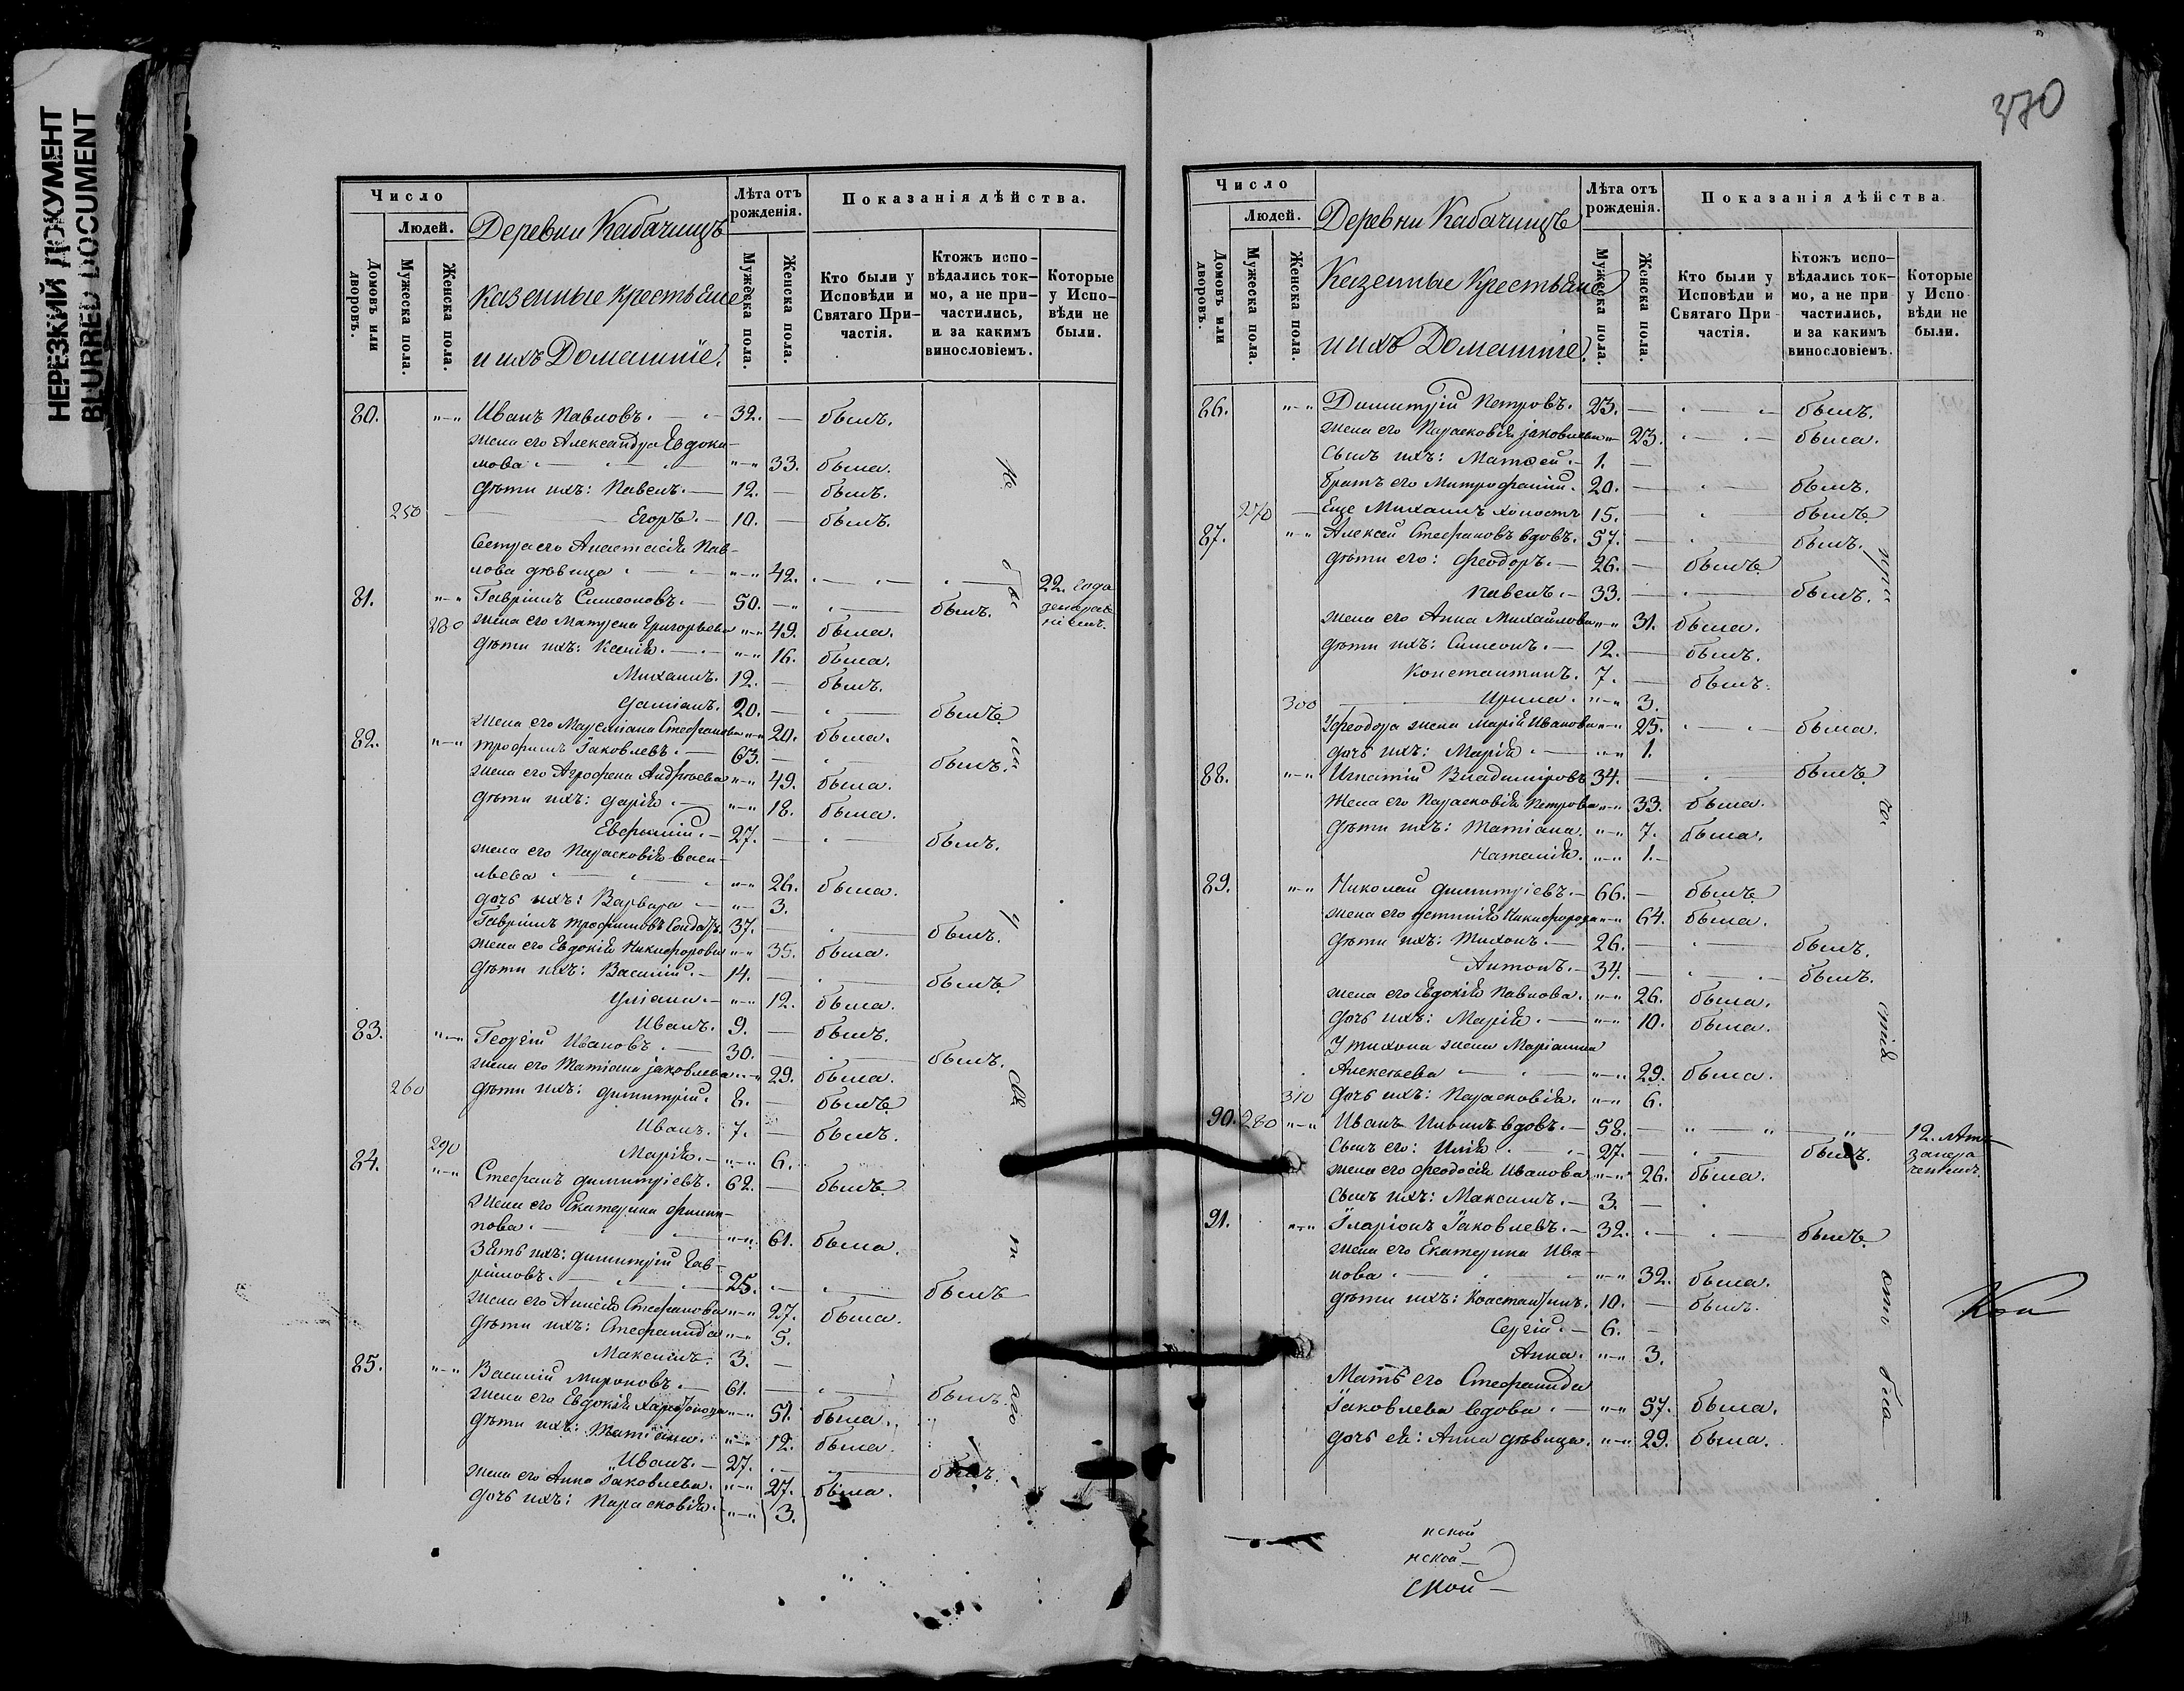 НЕРЕЗКИЙ ДОКУМЕНТ
BLURRED DOCUMENT
Число
Людей.
Домовъ или дворовъ.
Мужеска пола.
Женска пола.
Деревни Кабачищъ
казенные крестьяне
и ихъ Домашніе.
Лѣта отъ рожденія.
Мужеска пола.
Женска пола.
Показанія дѣйства.
Кто были у Исповѣди и Святаго Причастія.
Ктожъ исповѣдались токмо, а не причастились, и за какимъ винословіемъ.
Которые у Исповѣди не были.
80. "–" Иванъ Павловъ. 32. — былъ.
жена его Александра Евдоки-
мова "–" 33. была.
дѣти ихъ: Павелъ. 12. — былъ.
250 Егоръ. 10. — былъ.
Сестра его Анастасія Пав-
лова дѣвица "–" 42. 22. года
81. "–" Гавріилъ Симеоновъ. 50. былъ.
280 жена его Матрена Григорьева "–" 49. была.
дѣти ихъ: Ксенія. "–" 16. была.
Михаилъ. 12. — былъ.
Даміанъ. 20. — былъ.
жена его Стефанова "–" 20. была.
82. "–" Трофимъ Іаковлевъ. 63. — былъ.
жена его Агрофена Андреева "–" 49. была.
дѣти ихъ: Дарія "–" 18. была.
Евфимій. 27. — былъ.
жена его Параскевія Васи-
льева "–" 26. была.
дочь ихъ: Варвара "–" 3.
Гавріилъ Трофимовъ Солдатъ. 37. — былъ.
жена его Евдокія Никифорова "–" 35. была.
дѣти ихъ: Василій. 14. — былъ.
Уліана. "–" 12. была.
Иванъ. 9. — былъ.
83. "–" Георгій Ивановъ. 30. — былъ.
жена его Татіана Іаковлева "–" 29. была.
260 дѣти ихъ: Димитрій. 8. — былъ.
Иванъ. 7. — былъ.
290 Марія. "–" 6.
84. "–" Стефанъ Димитріевъ. 62. — былъ.
жена его Екатерина Филип-
пова. "–" 61. была.
Зять ихъ: Димитрій Гав-
ріиловъ. 25. былъ
жена его Анисія Стефанова "–" 27. была.
дѣти ихъ: Стефанида "–" 5.
Максимъ. 3. —
85. "–" Василій Мироновъ. 61. — былъ.
жена его Евдокія Харитонова "–" 51. была.
дѣти ихъ: Татіана. "–" 12. была.
Иванъ. 27. былъ.
жена его Анна Іаковлева. "–" 27. была.
дочь ихъ: Параскевія. "–" 3.
370
Число
Людей.
Домовъ или дворовъ.
Мужеска пола.
Женска пола.
Деревни Кабачищъ
Казенные Крестьяне
и ихъ Домашніе.
Лѣта отъ рожденія.
Мужеска пола.
Женска пола.
Показанія дѣйства
Кто были у Исповѣди и Святаго Причастія.
Ктожъ исповѣдались токмо, а не причастились, и за какимъ винословіемъ.
Которые у Исповѣди не были.
86. "–" Димитрій Петровъ. 23. — былъ.
жена его Параскевія Іаковлева "–" 23. была.
Сынъ ихъ: Матѳей. 1. —
Братъ его Митрофаній. 20. — былъ.
270 Еще Михаилъ холостъ 15. — былъ.
87. "–" Алексей Стефановъ вдовъ. 57. — былъ.
дѣти его: Феодоръ. 26. — былъ.
Павелъ. 33. — былъ.
жена его Анна Михайлова "–" 31. была.
дѣти ихъ: Симеонъ. 12. — былъ.
Константинъ. 7. — былъ.
300 Ирина. "–" 3.
У Феодора жена Марія Иванова "–" 25. была.
дочь ихъ: Марія "–" 1.
88. "–" Игнатій Владиміровъ 34. — былъ.
Жена его Параскевія Петрова "–" 33. была.
дѣти ихъ: Татіана. "–" 7. была.
Наталія. "–" 1.
89. "–" Николай Димитріевъ. 66. — былъ.
жена его Никифорова "–" 64. была.
дѣти ихъ: Тихонъ. 26. — былъ.
Антонъ. 34. — былъ.
жена его Евдокія Павлова. "–" 26. была.
дочь ихъ: Марія. "–" 10. была.
У Тихона жена Маріамна
Алексеева "–" 29. была.
310 дочь ихъ: Параскевія. "–" 6.
90. 280 "–" Иванъ вдовъ. 58. — 12. лѣтъ
Сынъ его: Илія 27. — былъ.
жена его Феодосія Иванова "–" 26. была.
Сынъ ихъ: Максимъ. 3. —
91. "–" Іларіонъ Іаковлевъ. 32. былъ.
жена его Екатерина Ива-
нова "–" 32. была.
дѣти ихъ: Константинъ. 10. — былъ.
Сергій. 6. —
Анна. "–" 3.
Мать его Стефанида
Іаковлева вдова. "–" 57. была.
дочь ея: Анна дѣвица. "–" 29. была.
нской
нской
ской